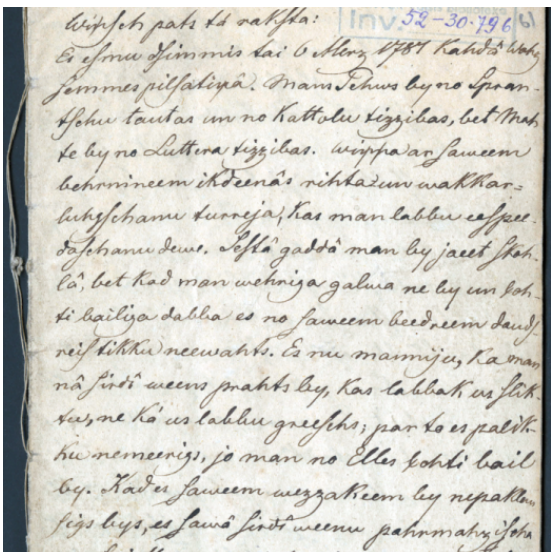 Inv. 52-30.796 6)
Winsch pats tà raksta:
Es esmu dsimmis tai 6 Merz 1787 kahdâ Wahz
semmes pilsatiņâ. Mans Tehws by no Spran-
tschu tautas un no Kattolu tizzibas, bet Mah
te by no Luttera tizzibas. wiņņa ar saweem
behrnineem ikdeenâs rihta un wakkar-
luhgschanu turreja, kas man labbu eespee-
daschanu dewe. Sestâ gaddâ man by jaeet skoh-
lâ, bet kad man wehriga galwa ne by un ļoh-
ti bailiga dabba es no saweem beedreem daudſ
reis tikku neewahts. Es nu manniju, ka man-
nâ sirdî weens prahts by, kas labbak us slik-
tu, ne kâ us labbu greeschs; par to es palik-
ku nemeerigs, jo man no Elles ļohti bail
by. Kad es saweem wezzakeem by nepaklau
sigs bys, es sawâ sirdî weenu pahrmahzischa